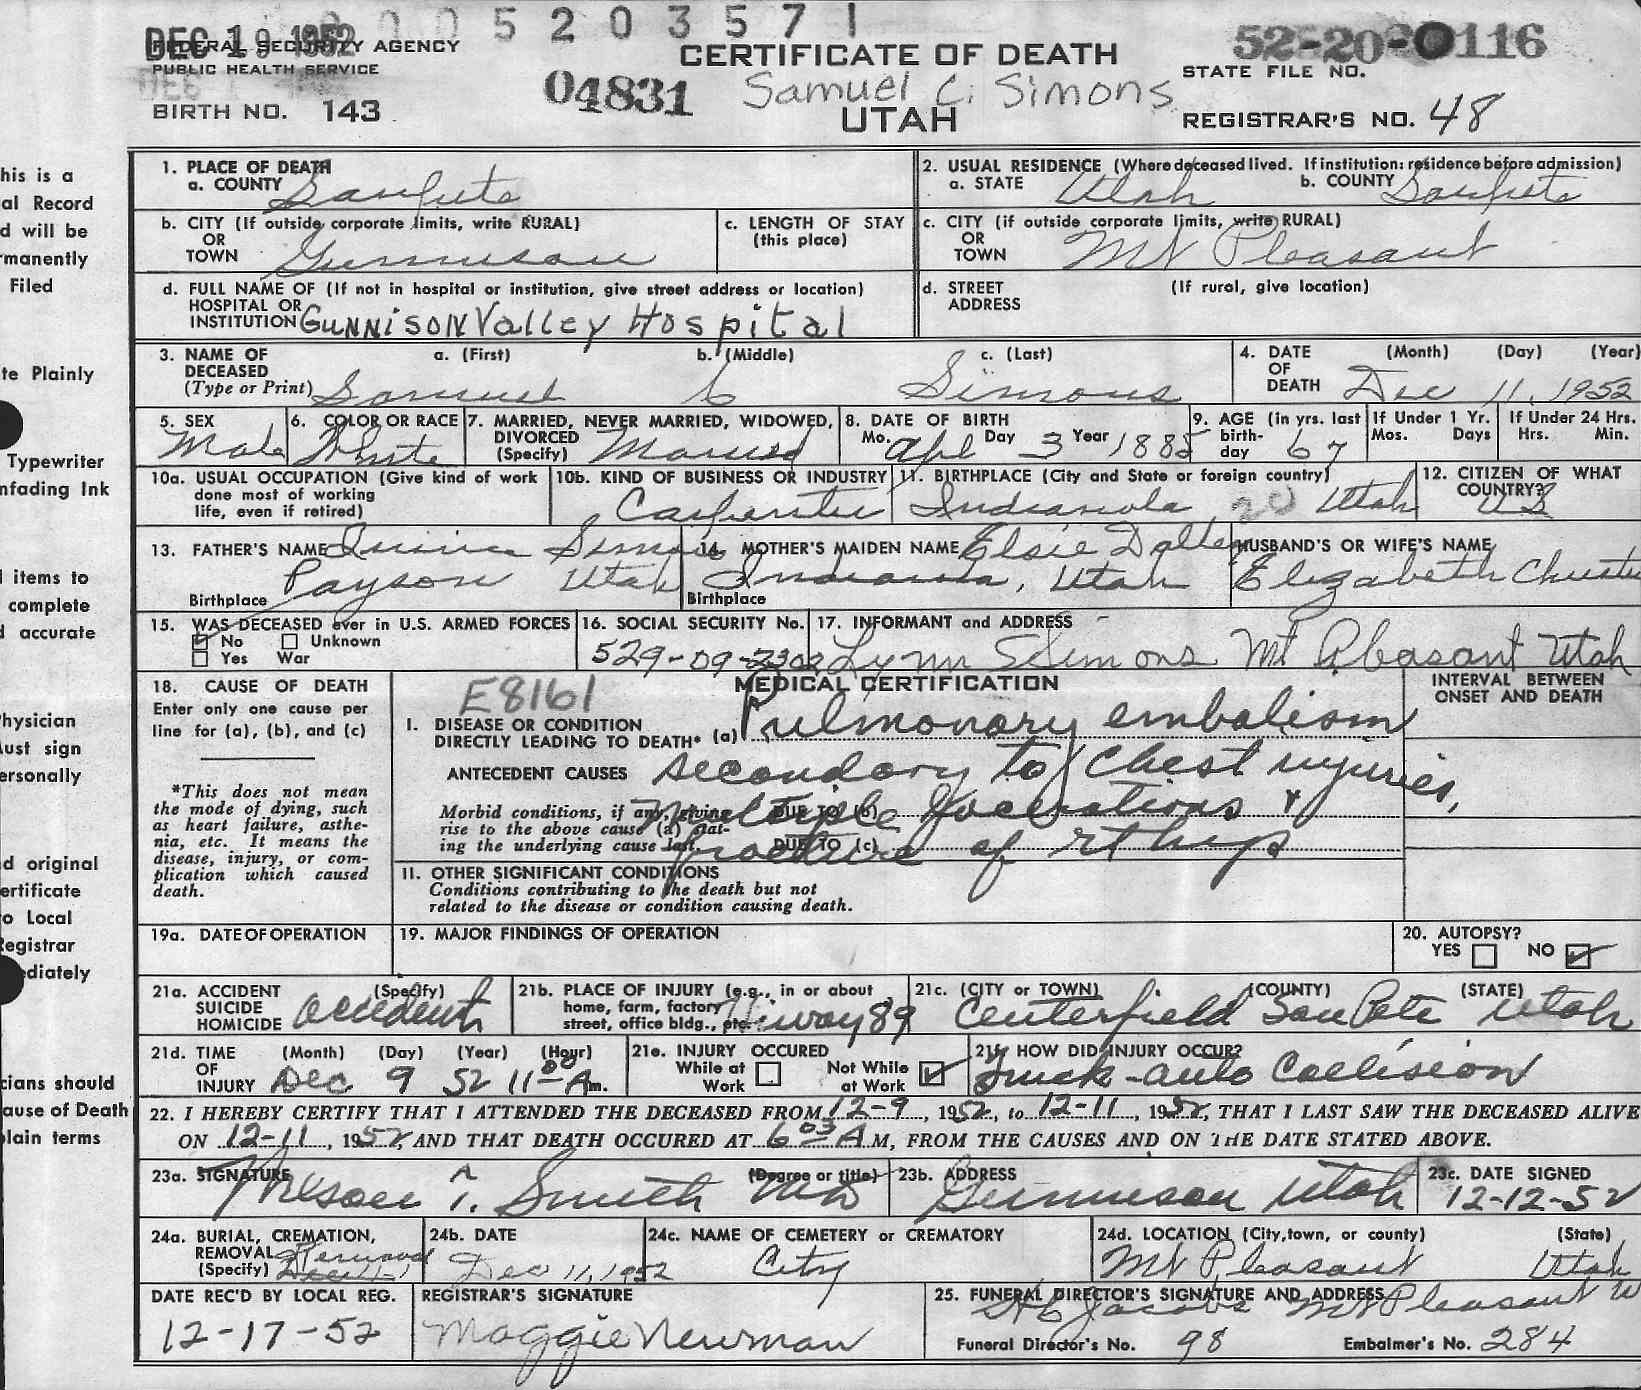 00 5 2 0 3 5 7 1
DEC 19 1952
FEDERAL SECURITY AGENCY
PUBLIC HEALTH SERVICE
BIRTH NO. 143
04831
CERTIFICATE OF DEATH
Samuel C. Simons
UTAH
52-20- 0116
STATE FILE NO.
REGISTRAR'S NO. 48
his is a
al Record
d will be
rmanently
Filed
te Plainly
Typewriter
nfading Ink
l items to
complete
d accurate
hysician
ust sign
ersonally
d original
ertificate
o Local
Registrar
ediately
cians should
ause of Death
lain terms
1. PLACE OF DEATH
a. COUNTY Sanpete
2. USUAL RESIDENCE (Where deceased lived. If institution: residence before admission)
a. STATE Utah b. COUNTY Sanpete
b. CITY (If outside corporate limits, write RURAL)
OR
TOWN Gunnison
c. LENGTH OF STAY
(this place)
c. CITY (if outside corporate limits, write RURAL)
OR
TOWN Mt Pleasant
d. FULL NAME OF (If not in hospital or institution, give street address or location)
HOSPITAL OR
INSTITUTION Gunnison Valley Hospital
d. STREET (If rural, give location)
ADDRESS
3. NAME OF DECEASED (Type or Print)
a. (First) b. (Middle) c. (Last)
Samuel C Simons
4. DATE OF DEATH (Month) (Day) (Year)
Dec 11, 1952
5. SEX
Male
6. COLOR OR RACE
White
7. MARRIED, NEVER MARRIED, WIDOWED,
DIVORCED
(Specify) Married
8. DATE OF BIRTH
Mo. Apl Day 3 Year 1885
9. AGE (in yrs. last
birth-
day 67
If Under 1 Yr.
Mos. Days
If Under 24 Hrs.
Hrs. Min.
10a. USUAL OCCUPATION (Give kind of work
done most of working
life, even if retired)
10b. KIND OF BUSINESS OR INDUSTRY
Carpenter
11. BIRTHPLACE (City and State or foreign country)
Indianola 20 Utah
12. CITIZEN OF WHAT
COUNTRY?
US
13. FATHER'S NAME Simons
Payson Utah
Birthplace
14. MOTHER'S MAIDEN NAME Elsie
Indianola, Utah
Birthplace
HUSBAND'S OR WIFE'S NAME
Elizabeth
15. WAS DECEASED ever in U.S. ARMED FORCES
No Unknown
Yes War
16. SOCIAL SECURITY No.
529-09-2302
17. INFORMANT and ADDRESS
Lynn S Simons Mt Pleasant Utah
18. CAUSE OF DEATH
Enter only one cause per
line for (a), (b), and (c)
*This does not mean
the mode of dying, such
as heart failure, asthe-
nia, etc. It means the
disease, injury, or com-
plication which caused
death.
E8161
MEDICAL CERTIFICATION
INTERVAL BETWEEN
ONSET AND DEATH
I. DISEASE OR CONDITION
DIRECTLY LEADING TO DEATH* (a) Pulmonary embalism
ANTECEDENT CAUSES secondary to chest injuries,
Morbid conditions, if any, giving DUE TO (b) Multiple lacerations &
rise to the above cause (a) stat-
ing the underlying cause last. DUE TO (c) fracture of rt hip
11. OTHER SIGNIFICANT CONDITIONS
Conditions contributing to the death but not
related to the disease or condition causing death.
19a. DATE OF OPERATION
19. MAJOR FINDINGS OF OPERATION
20. AUTOPSY?
YES NO
21a. ACCIDENT (Specify)
SUICIDE
HOMICIDE accident
21b. PLACE OF INJURY (e.g., in or about
home, farm, factory
street, office bldg., etc. Hiway 89
21c. (CITY or TOWN) (COUNTY) (STATE)
Centerfield SanPete Utah
21d. TIME OF INJURY (Month) (Day) (Year) (Hour)
Dec 9 52 11 00 A m.
21e. INJURY OCCURED
While at Work Not While at Work
21f. HOW DID INJURY OCCUR?
Truck-auto Collision
22. I HEREBY CERTIFY THAT I ATTENDED THE DECEASED FROM 12-9, 1952, to 12-11, 1952, THAT I LAST SAW THE DECEASED ALIVE
ON 12-11, 1952, AND THAT DEATH OCCURED AT 6 03 A M, FROM THE CAUSES AND ON THE DATE STATED ABOVE.
23a. SIGNATURE (Degree or title)
T. Smith MD
23b. ADDRESS
Gunnison Utah
23c. DATE SIGNED
12-12-52
24a. BURIAL, CREMATION,
REMOVAL
(Specify) Removal
24b. DATE
Dec 11, 1952
24c. NAME OF CEMETERY OR CREMATORY
City
24d. LOCATION (City, town, or county) (State)
Mt Pleasant Utah
DATE REC'D BY LOCAL REG.
12-17-52
REGISTRAR'S SIGNATURE
Maggie Newman
25. FUNERAL DIRECTOR'S SIGNATURE AND ADDRESS
Jacobs Mt Pleasant
Funeral Director's No. 98 Embalmer's No. 284